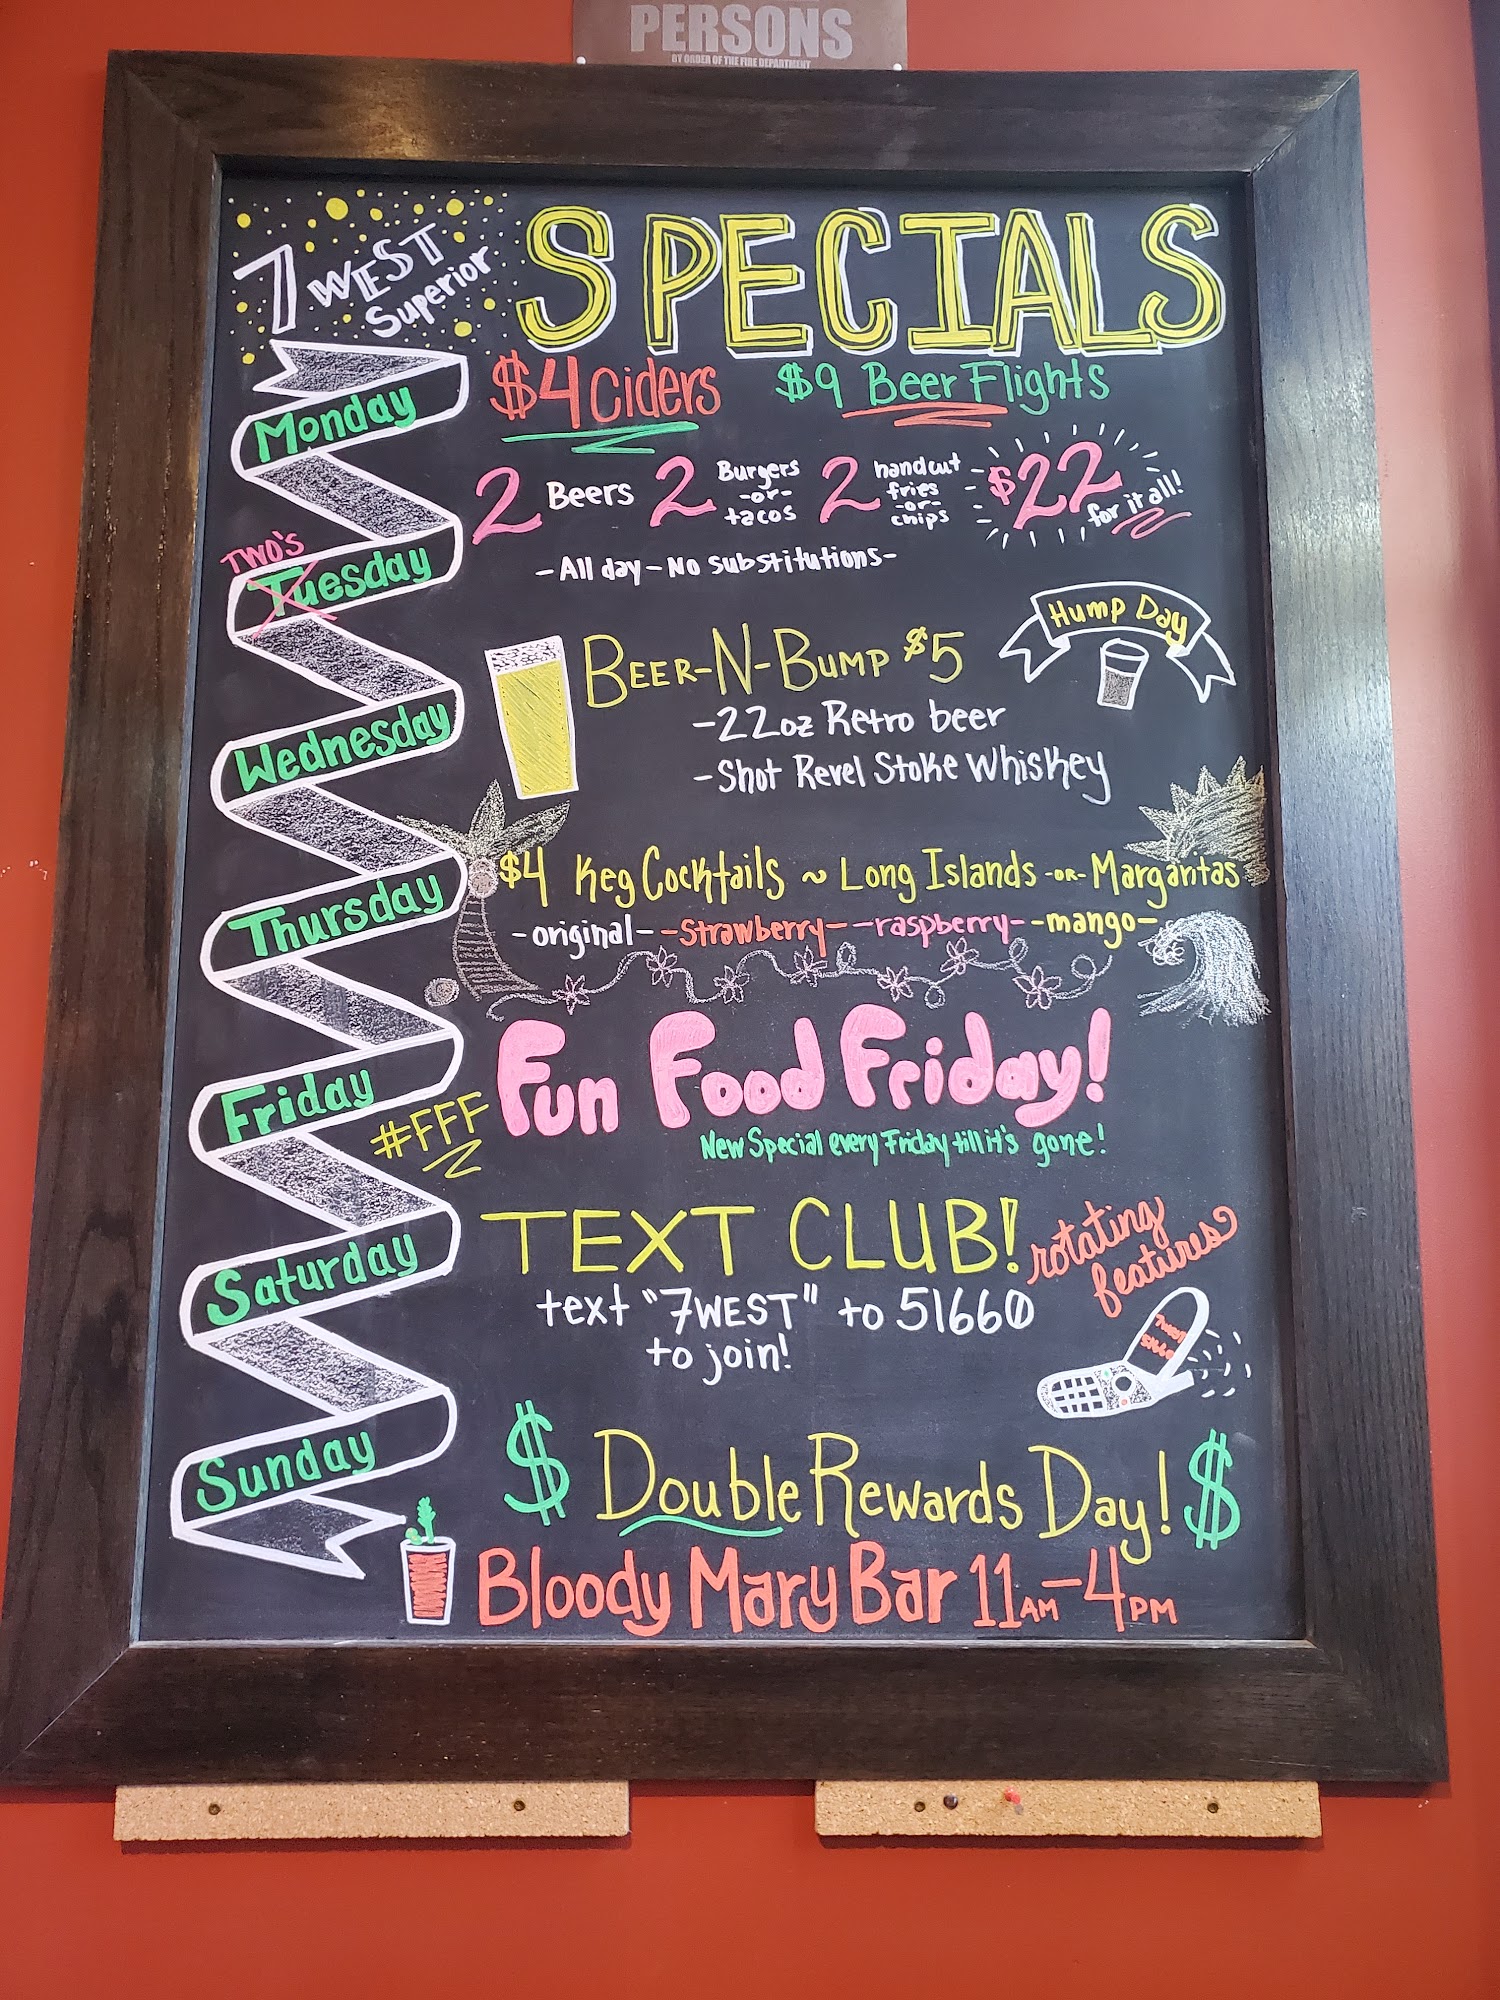 PERSONS
BY ORDER OF THE FIRE DEPARTMENT
7 WEST
Superior
SPECIALS
Monday
$4 Ciders
$9 Beer Flights
TWO'S
Tuesday
2 Beers 2 Burgers -or- tacos 2 handcut fries -or- chips $22 for it all!
- All day - No substitutions -
Wednesday
Beer-N-Bump $5
Hump Day
- 22oz Retro beer
- Shot Revel Stoke Whiskey
Thursday
$4 Keg Cocktails ~ Long Islands -or- Margaritas
- original - - Strawberry - - raspberry - - mango -
Friday
#FFF
Fun Food Friday!
New Special every Friday till it's gone!
Saturday
TEXT CLUB!
rotating
features
text "7WEST" to 51660
to join!
7WEST
51660
Sunday
$ Double Rewards Day! $
Bloody Mary Bar 11AM-4PM